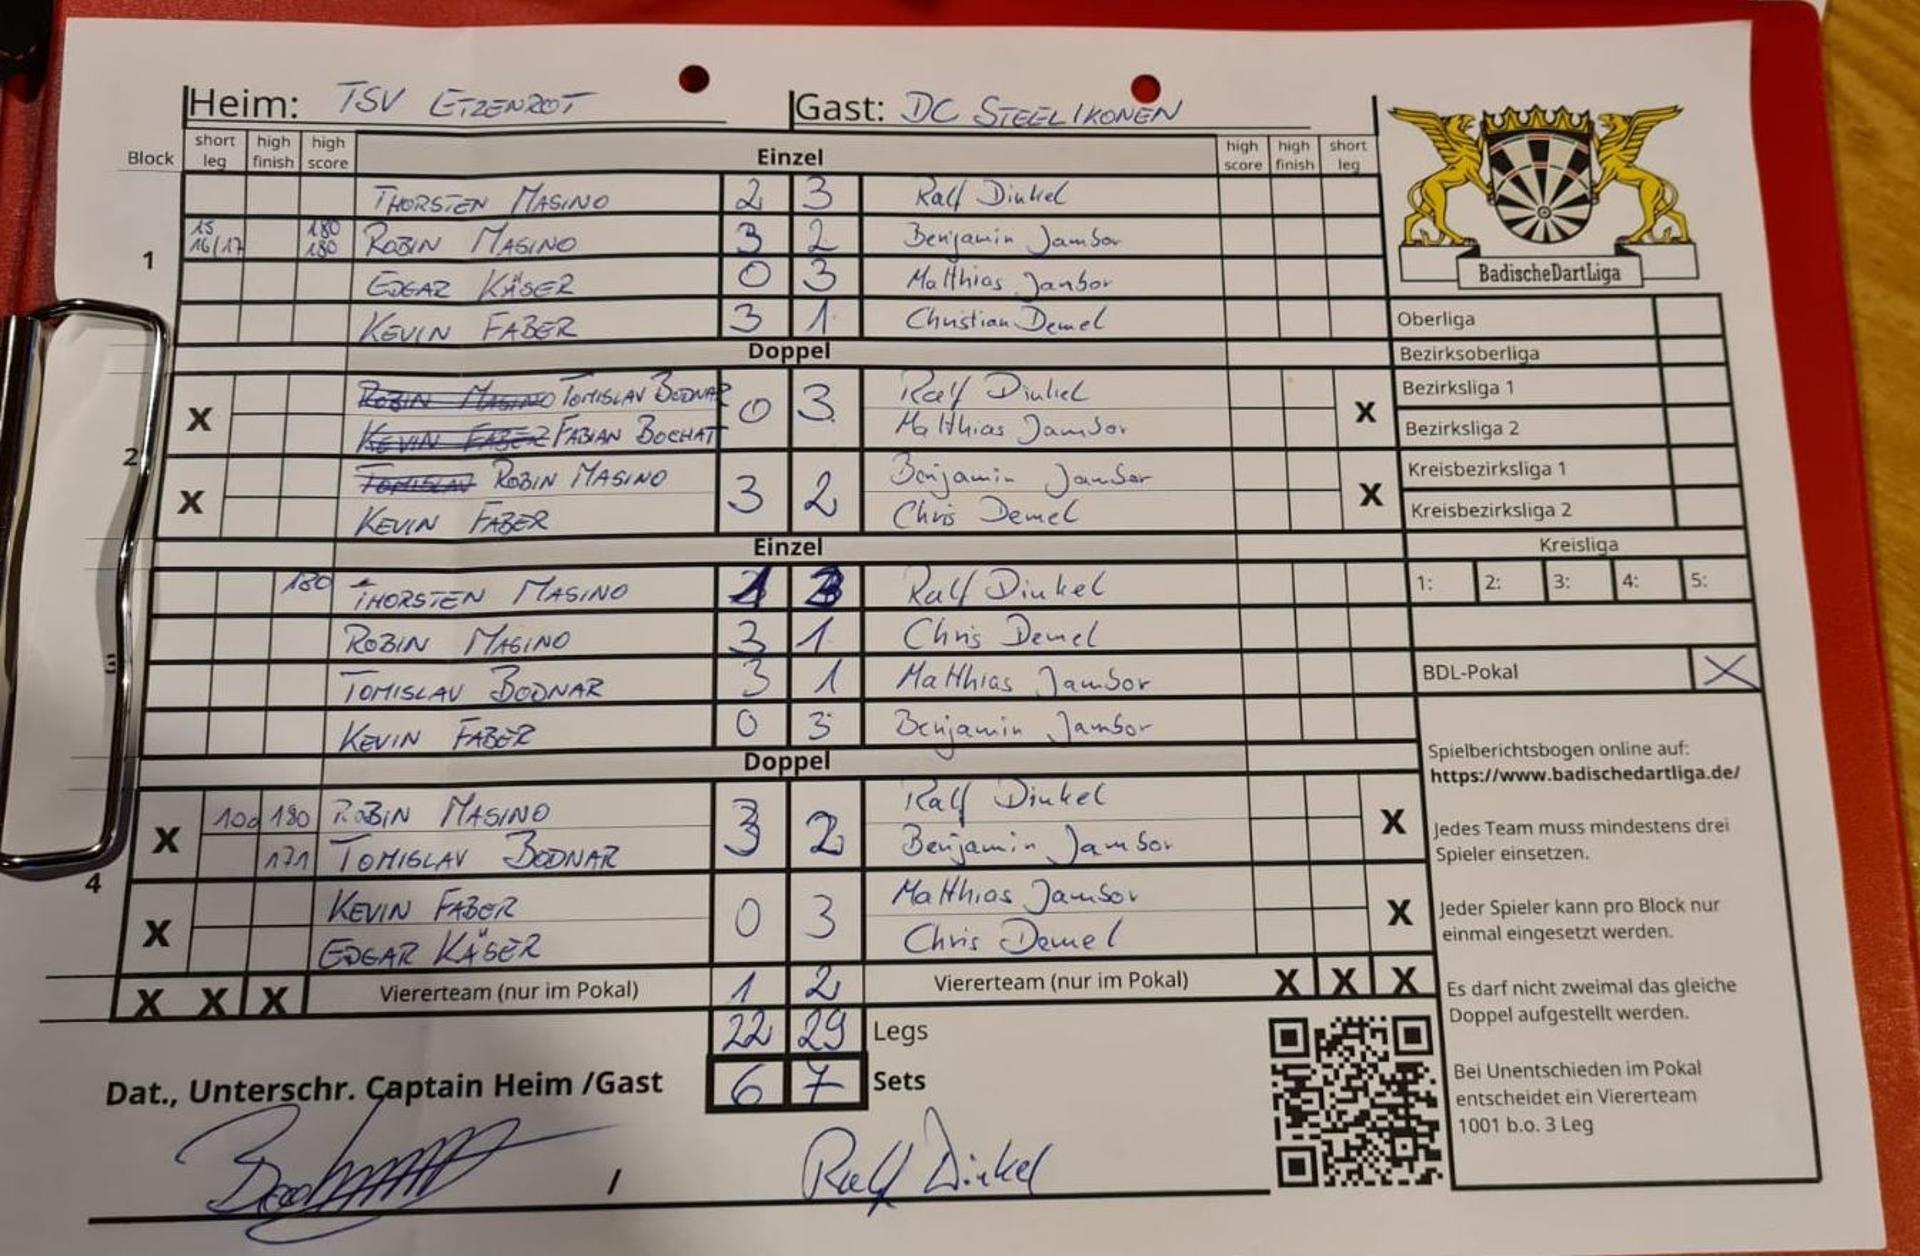 Heim: TSV ETZENROT Gast: DC STEELIKONEN
Block short leg high finish high score Einzel high score high finish short leg
THORSTEN MASINO 2 3 Ralf Dinkel
1 15 16/17 180 180 ROBIN MASINO 3 2 Benjamin Jambor
EDGAR KÄSER 0 3 Matthias Jambor
KEVIN FABER 3 1 Christian Demel
Doppel
X ROBIN MASINO TOMISLAV BODNAR 0 3 Ralf Dinkel X
KEVIN FABER FABIAN BOCHAT Matthias Jambor
2
X TOMISLAV ROBIN MASINO 3 2 Benjamin Jambor X
KEVIN FABER Chris Demel
Einzel
180 THORSTEN MASINO Ralf Dinkel
ROBIN MASINO 3 1 Chris Demel
3 TOMISLAV BODNAR 3 1 Matthias Jambor
KEVIN FABER 0 3 Benjamin Jambor
Doppel
X 180 ROBIN MASINO 3 2 Ralf Dinkel X
171 TOMISLAV BODNAR Benjamin Jambor
4
X KEVIN FABER 0 3 Matthias Jambor X
EDGAR KÄSER Chris Demel
X X X Viererteam (nur im Pokal) 1 2 Viererteam (nur im Pokal) X X X
22 29 Legs
Dat., Unterschr. Captain Heim /Gast 6 7 Sets
/ Ralf Dinkel
BadischeDartLiga
Oberliga
Bezirksoberliga
Bezirksliga 1
Bezirksliga 2
Kreisbezirksliga 1
Kreisbezirksliga 2
Kreisliga
1: 2: 3: 4: 5:
BDL-Pokal X
Spielberichtsbogen online auf:
https://www.badischedartliga.de/
Jedes Team muss mindestens drei
Spieler einsetzen.
Jeder Spieler kann pro Block nur
einmal eingesetzt werden.
Es darf nicht zweimal das gleiche
Doppel aufgestellt werden.
Bei Unentschieden im Pokal
entscheidet ein Viererteam
1001 b.o. 3 Leg